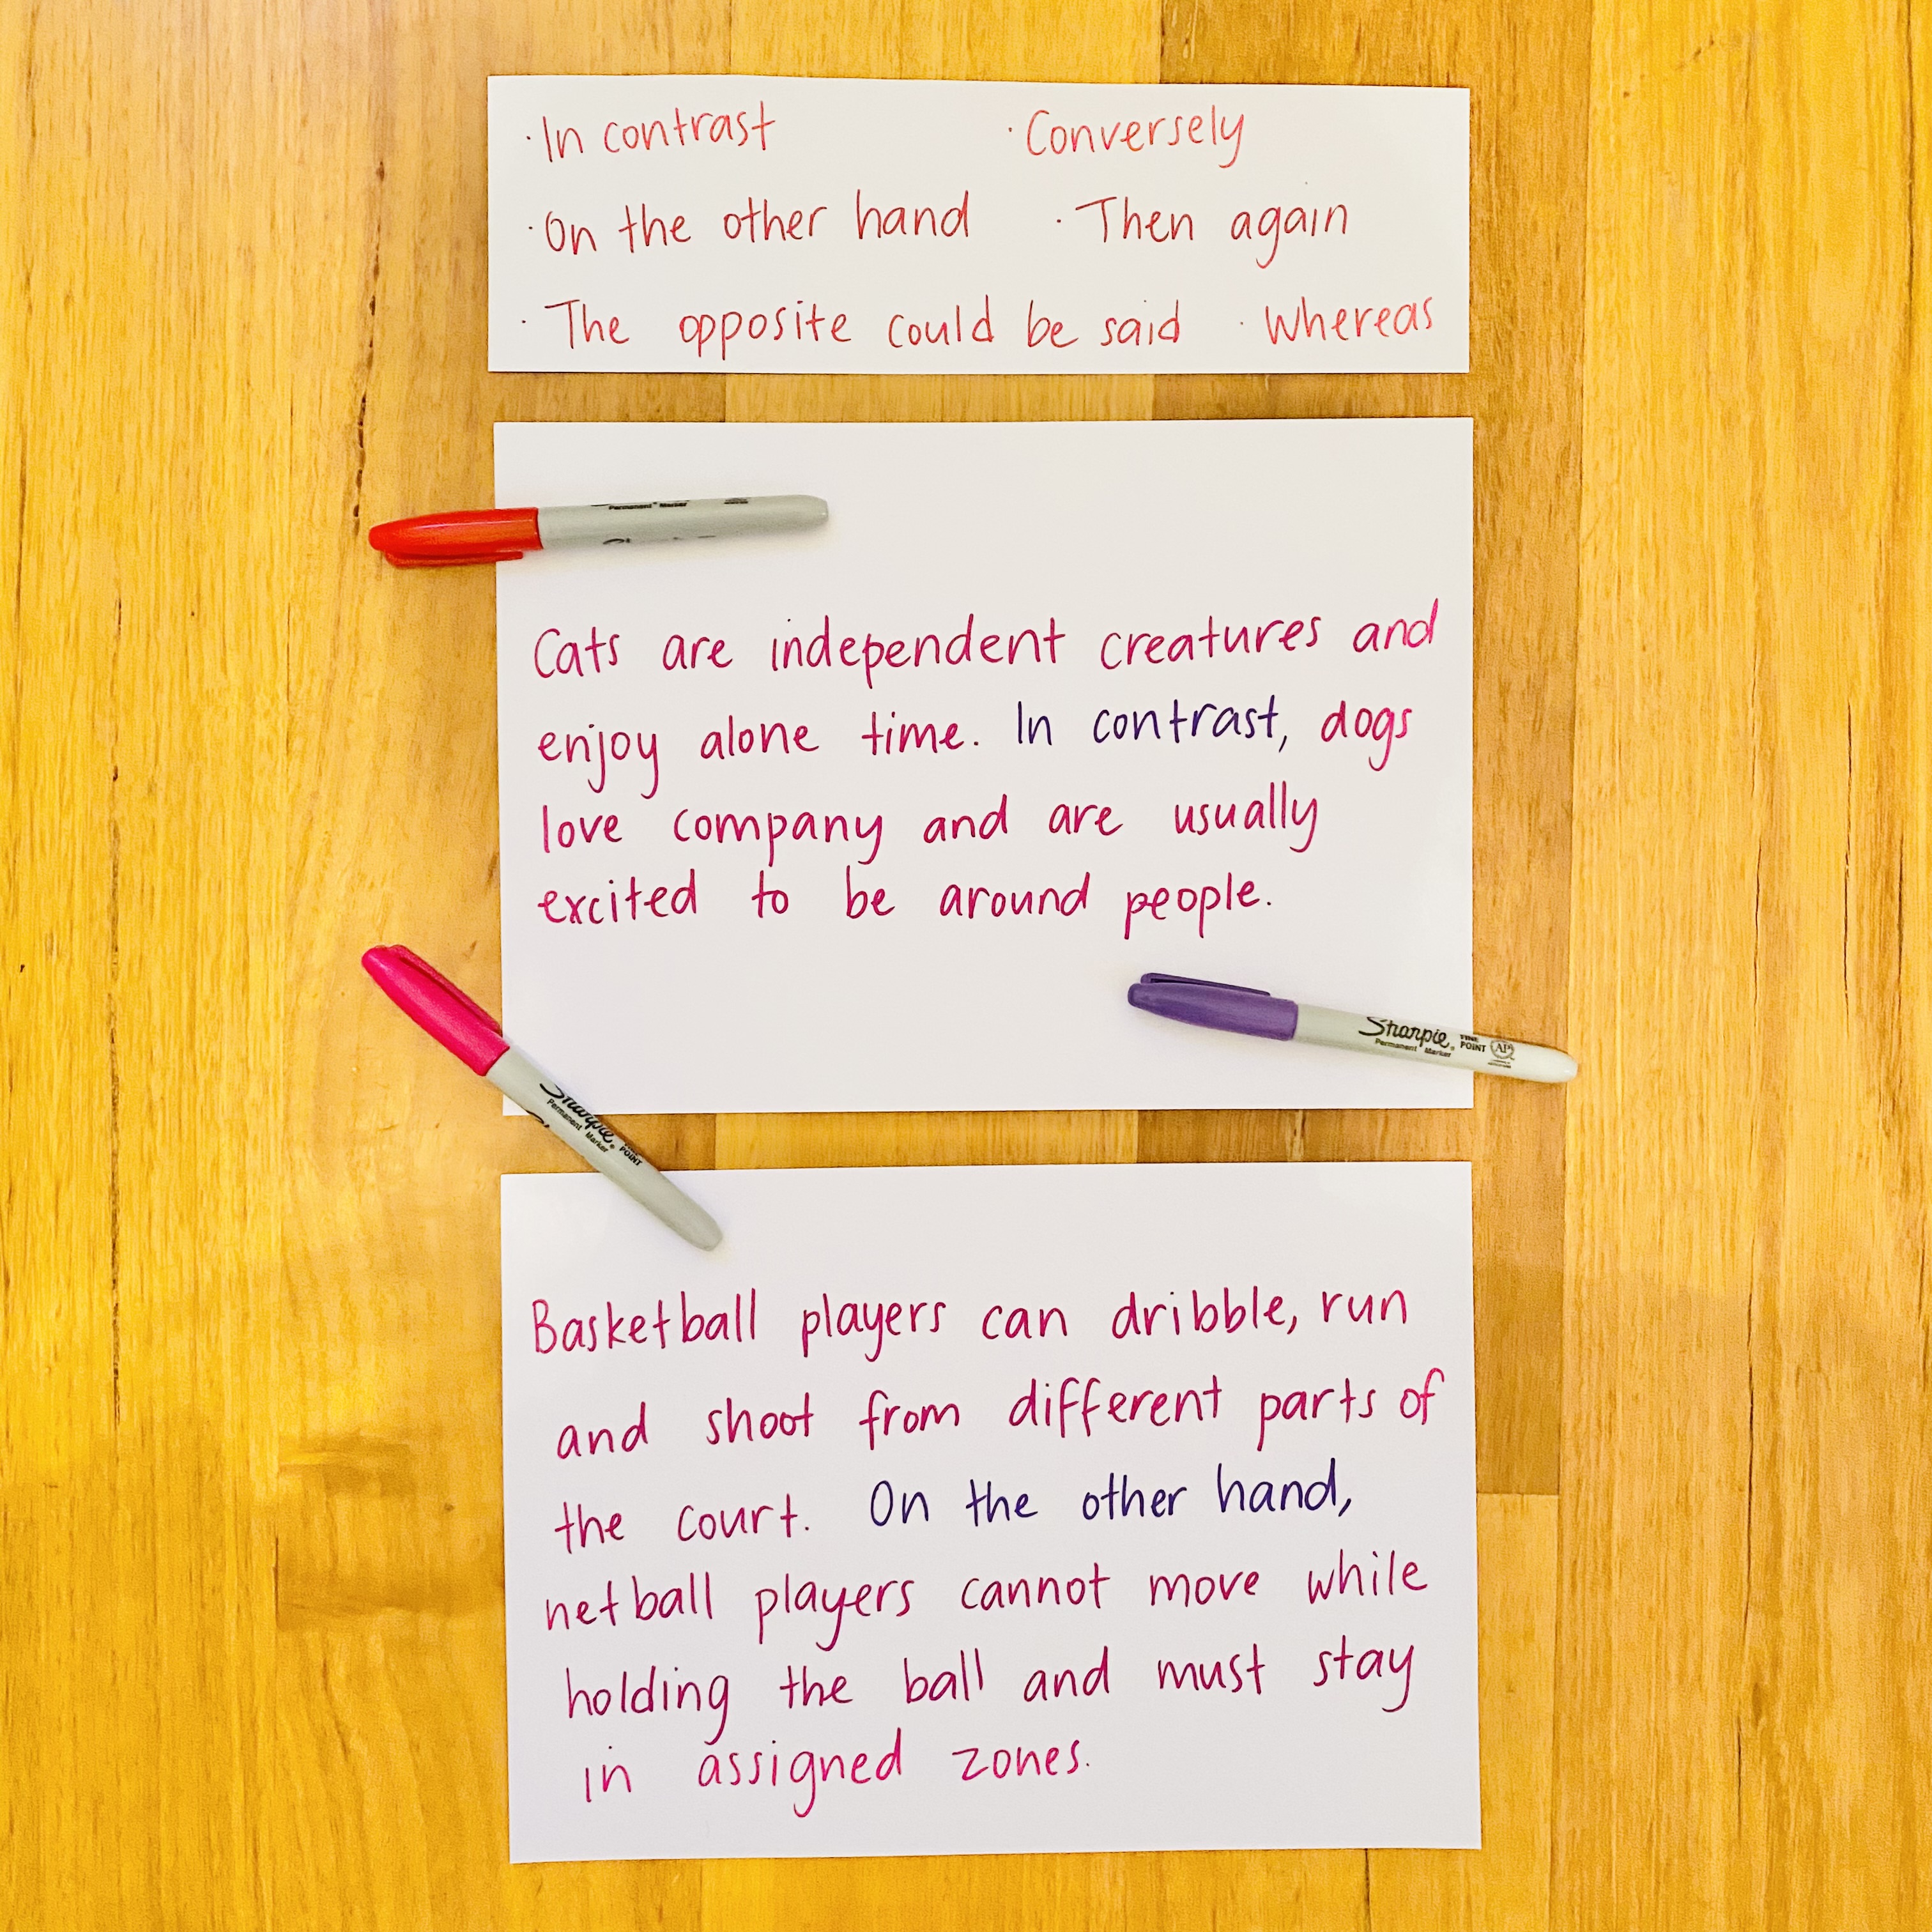 · In contrast · Conversely
· On the other hand · Then again
· The opposite could be said · Whereas
Permanent Marker
Cats are independent creatures and
enjoy alone time. In contrast, dogs
love company and are usually
excited to be around people.
Sharpie FINE POINT AP
Permanent Marker
Sharpie POINT
Permanent Marker
Basketball players can dribble, run
and shoot from different parts of
the court. On the other hand,
netball players cannot move while
holding the ball and must stay
in assigned zones.